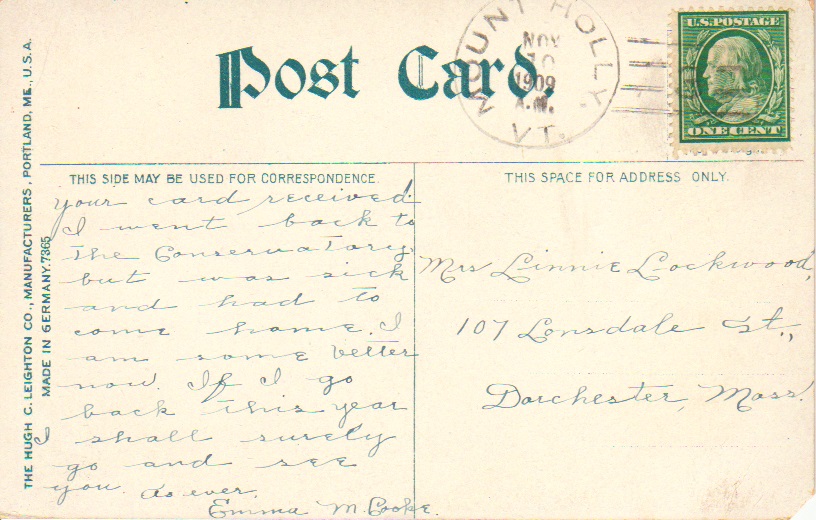 Post Card.
MOUNT HOLLY.
NOV
10
1909
A.M.
VT.
U.S. POSTAGE
ONE CENT
THE HUGH C. LEIGHTON CO., MANUFACTURERS, PORTLAND, ME., U.S.A.
MADE IN GERMANY. 7365
THIS SIDE MAY BE USED FOR CORRESPONDENCE.
your card received.
I went back to
the Conservatory
but was sick
and had to
come home. I
am some better
now. If I go
back this year
I shall surely
go and see
you. As ever,
Emma M. Cooke.
THIS SPACE FOR ADDRESS ONLY.
Mrs Linnie Lockwood,
107 Lonsdale St.,
Dorchester, Mass.